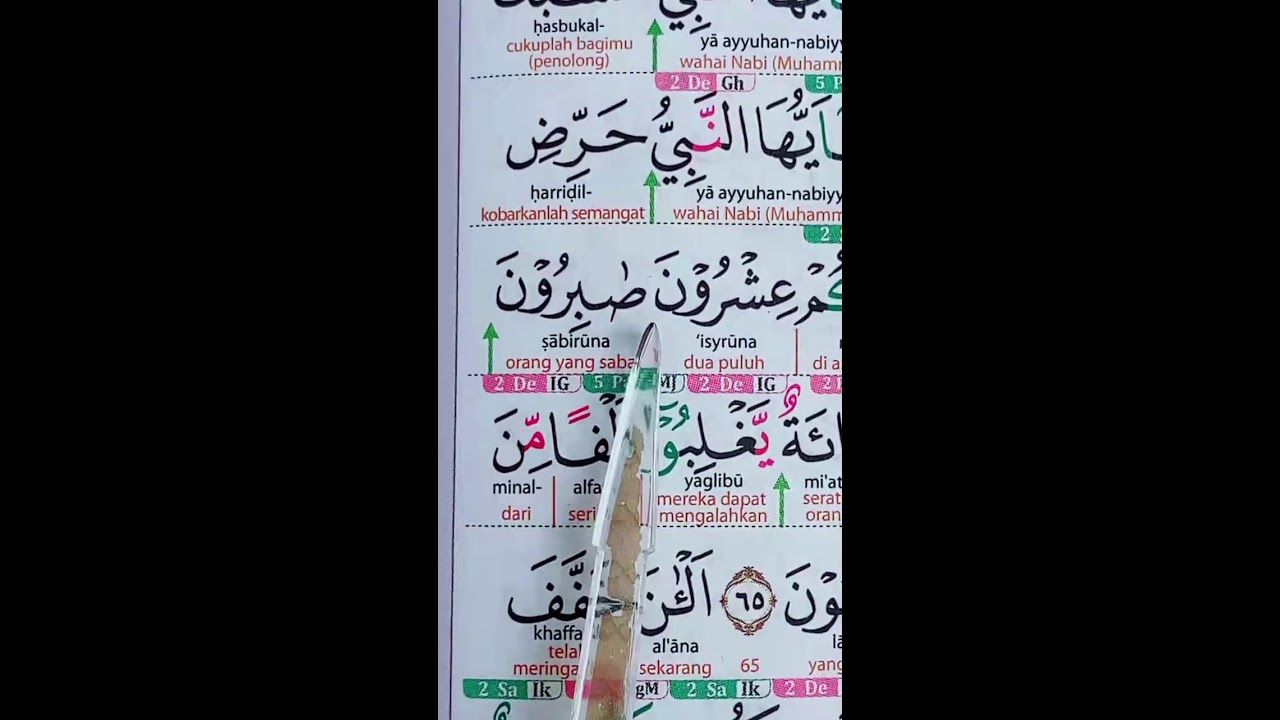 ḥasbukal- yā ayyuhan-nabiyy
cukuplah bagimu wahai Nabi (Muhamm
(penolong)
2 De Gh 5 P
يَاَيُّهَا النَّبِيُّ حَرِّضِ
ḥarriḍil- yā ayyuhan-nabiyy
kobarkanlah semangat wahai Nabi (Muhamm
2
كُمْ عِشْرُوْنَ صٰبِرُوْنَ
ṣābirūna 'isyrūna
orang yang saba dua puluh di a
2 De IG 5 P MJ 2 De IG 2
ائَةٌ يَّغْلِبُوْٓا اَلْفًا مِّنَ
minal- alfa yaglibū mi'at
dari seri mereka dapat serat
mengalahkan oran
وْنَ ٦٥ اَلْـٰٔنَ خَفَّفَ
khaffa al'āna lā
tela sekarang 65 yang
meringa
2 Sa Ik gM 2 Sa Ik 2 De